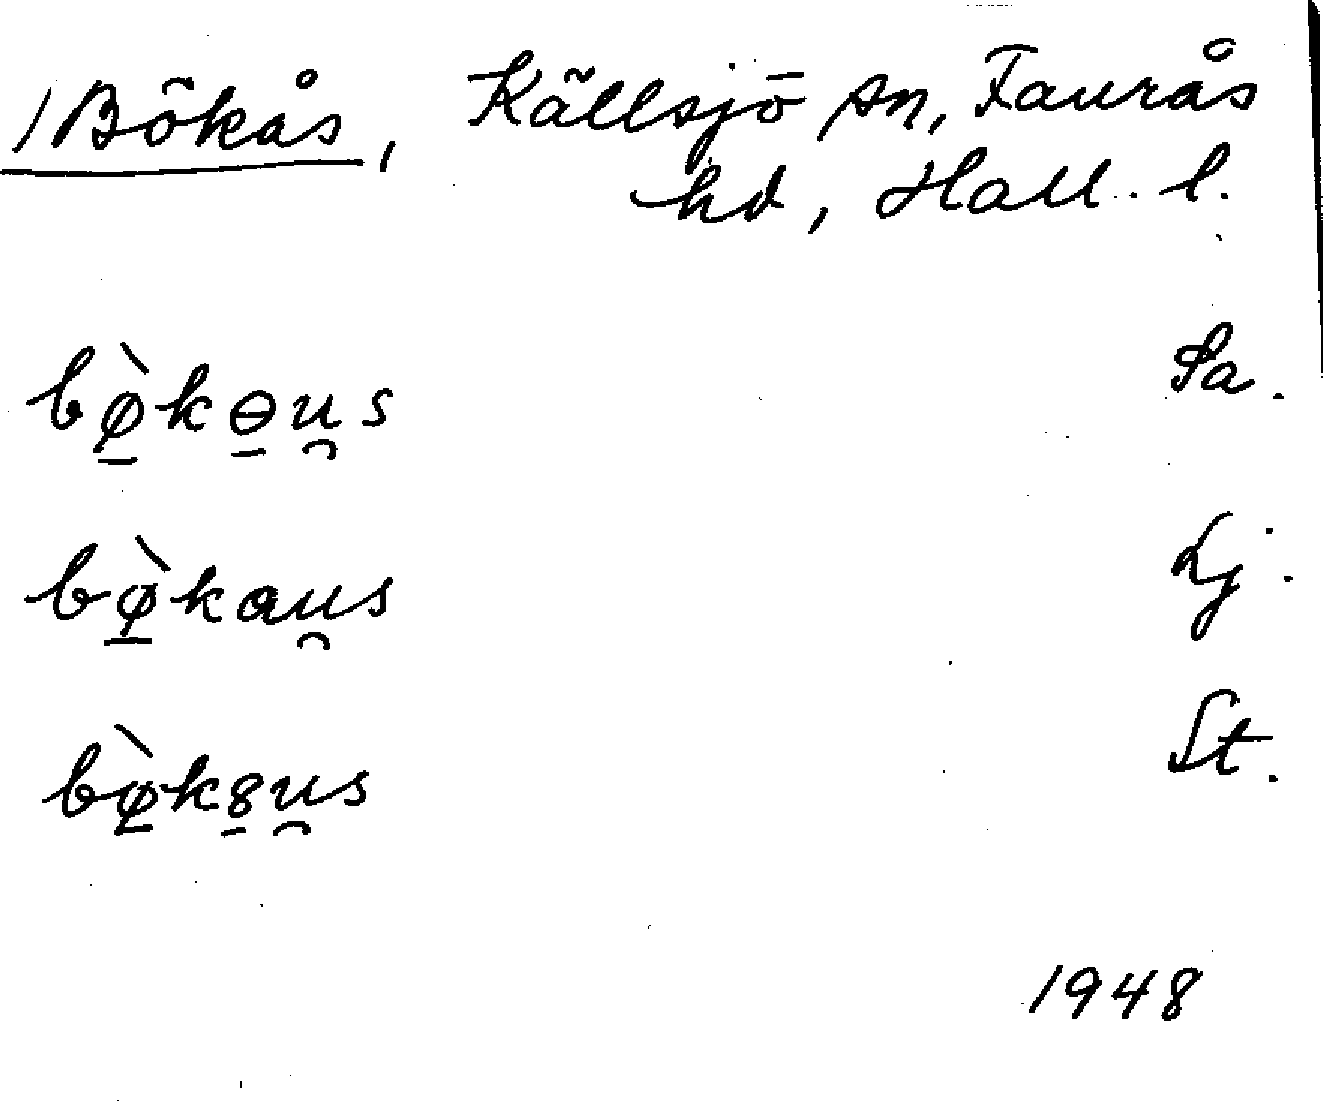 Bökås, Källsjö sn, Faurås
hd, Hall. l.
bø̱̀kɵ̱u̯s Sa.
bø̱̀kau̯s Lj.
bø̱̀k8̱u̯s St.
1948